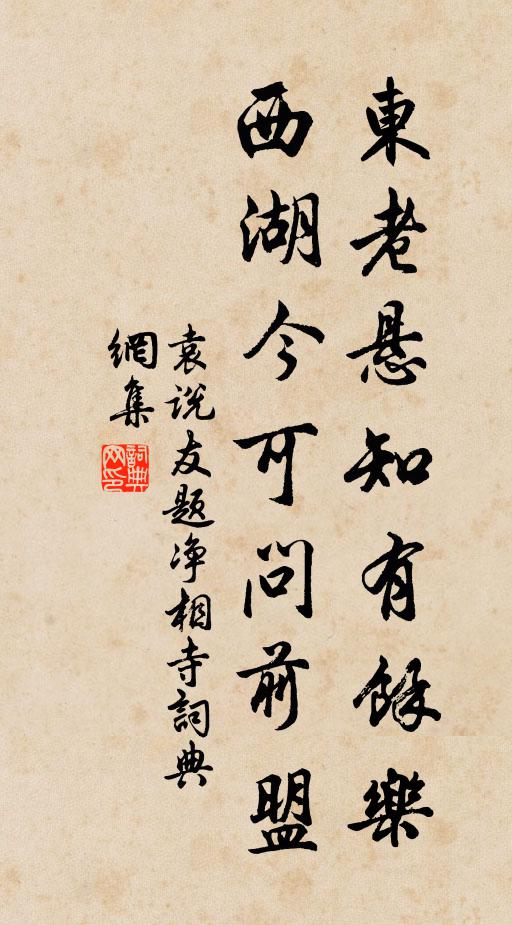 東老悬知有餘樂
西湖今可問前盟
袁说友题净相寺詞典
網集
詞典网印